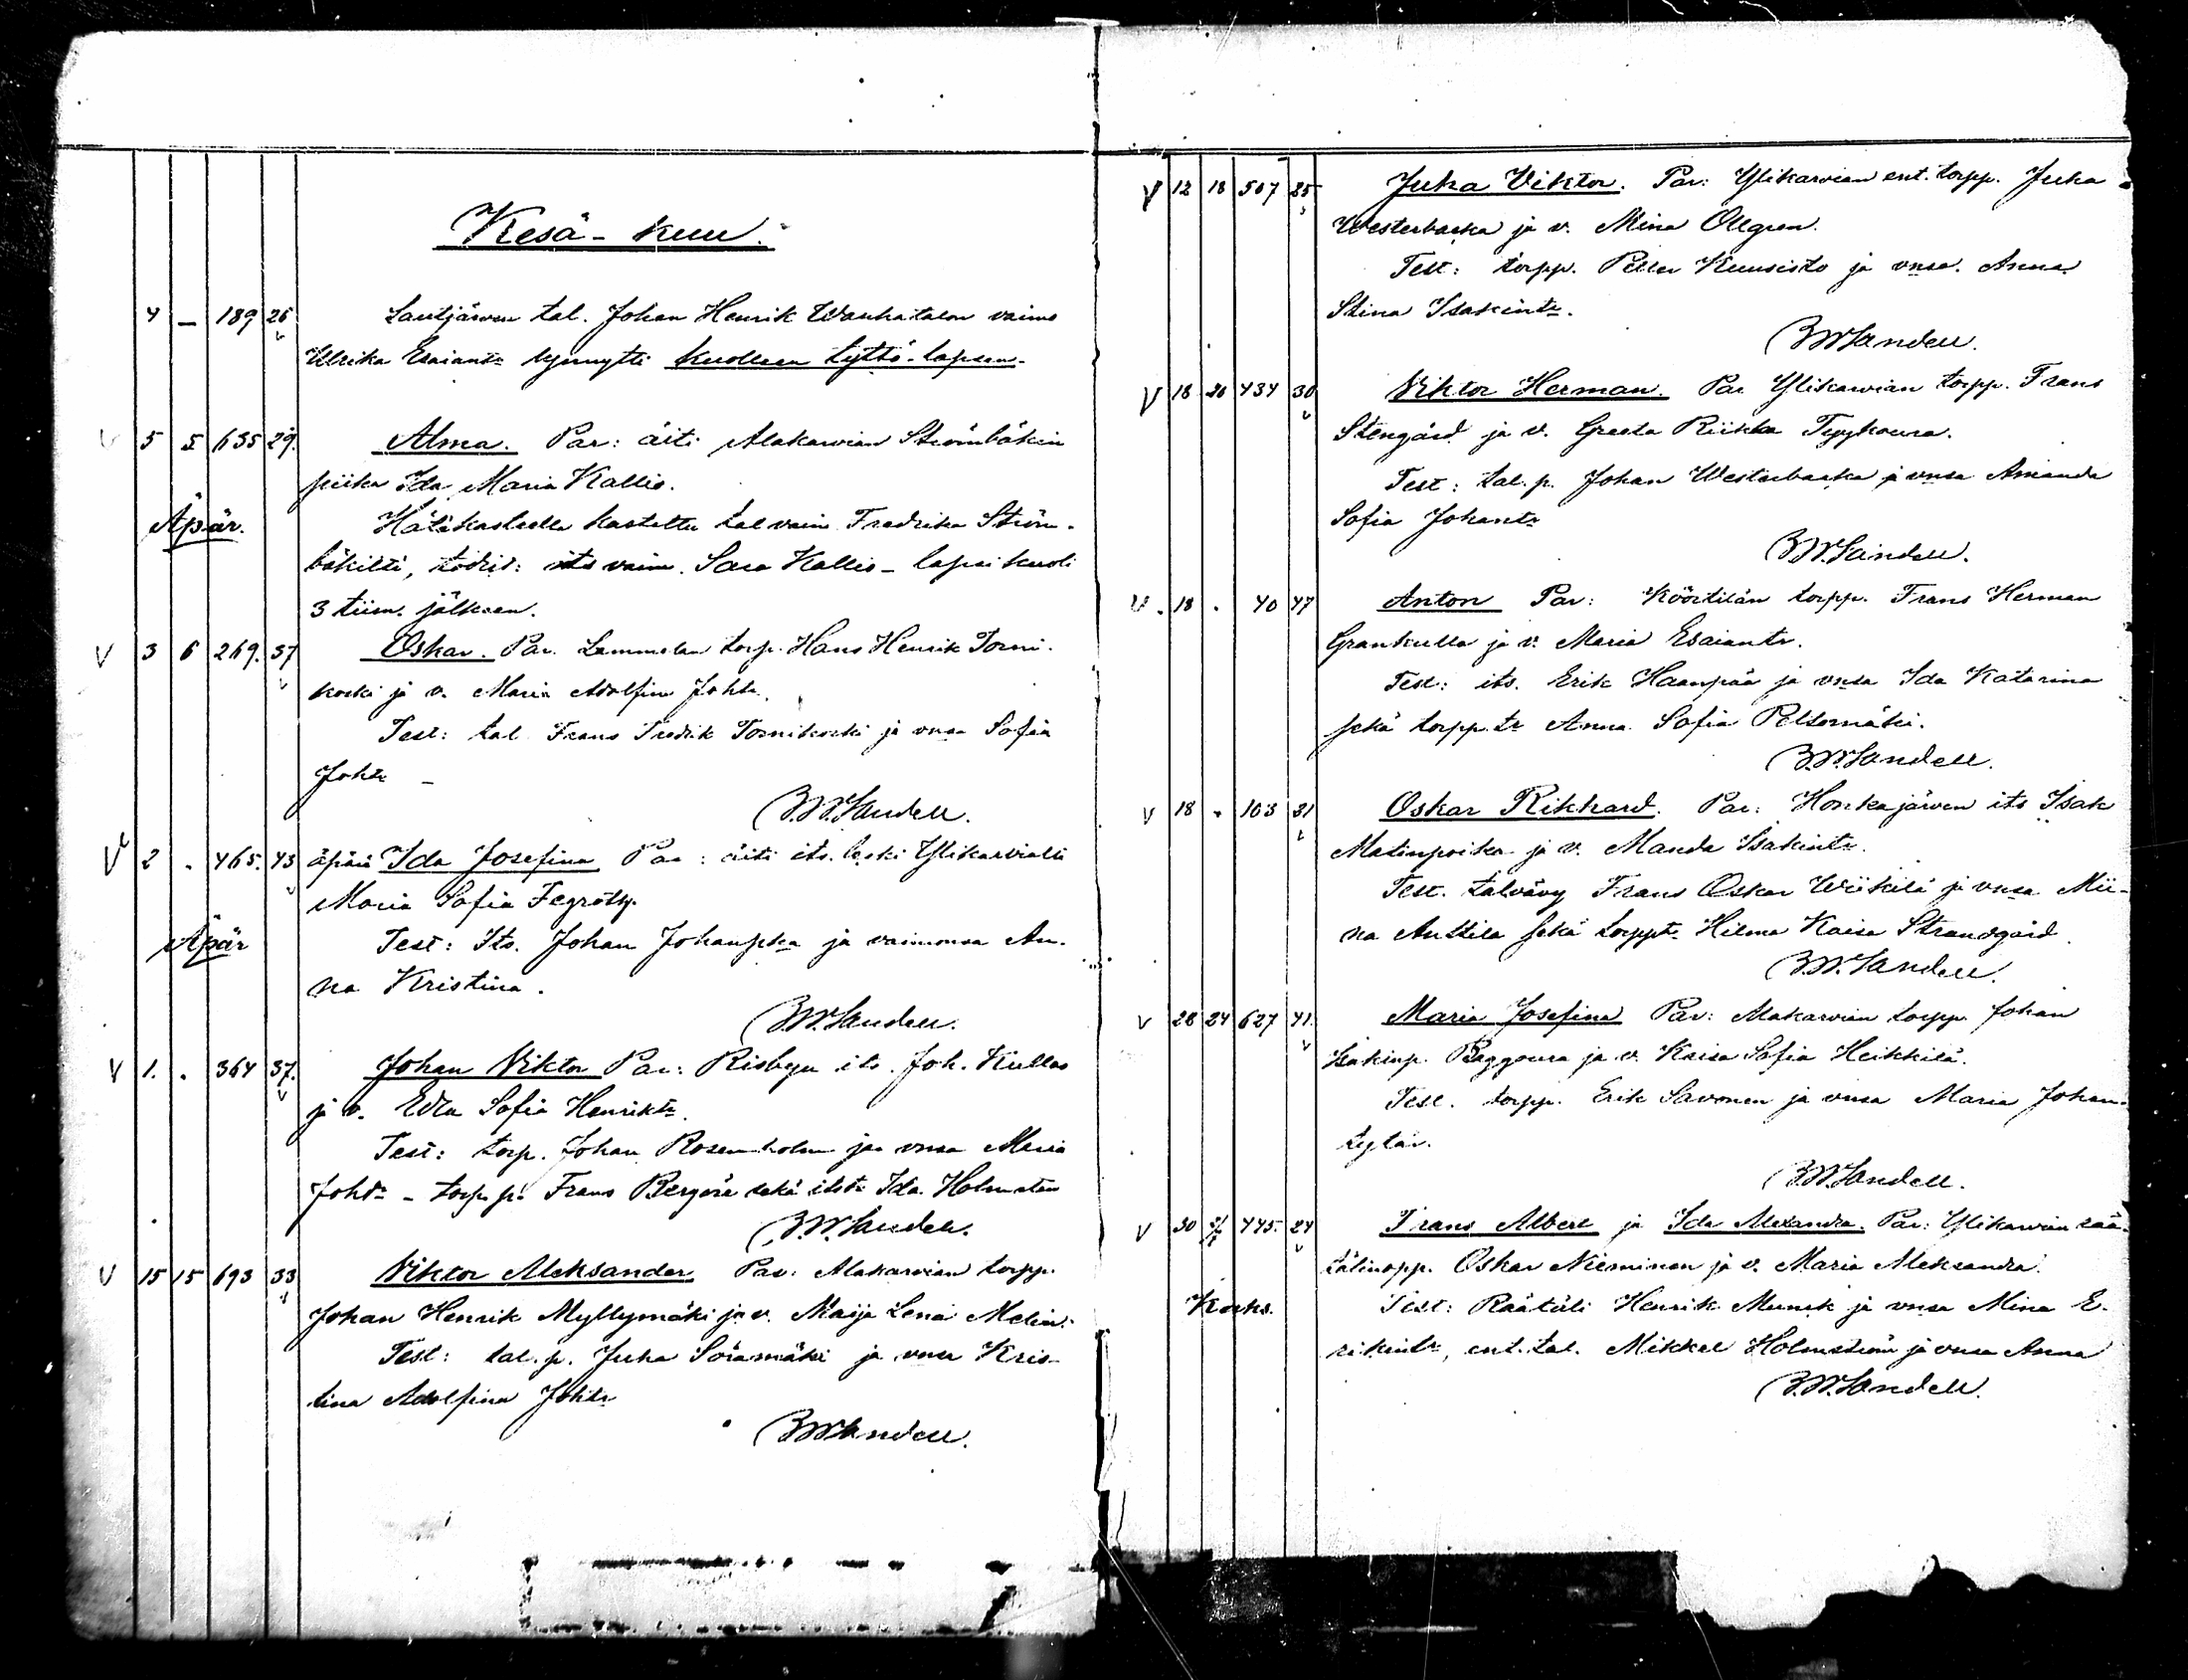 Kesä-kuu.
4 — 189 26 Lautjärven tal. Johan Henrik Wanhatalon vaimo
Ulrika Esaiantr synnytti kuolleen tyttö-lapsen.
V 5 5 635 29. Alma. Par: äiti Alakarvian Strömbäkin
piika Ida Maria Kallio.
Äpär. Hätäkasteella kastettu tal vaim Fredrika Ström-
bäkiltä, todist: its vaim. Sara Kallio - lapsi kuoli
3 tiim. jälkeen.
V 3 6 269. 37 Oskar. Par. Lammelan torp. Hans Henrik Torni-
koski ja v. Maria Adolfina Johtr.
Test: tal Frans Fredrik Tornikoski ja vnsa Sofia
Johtr -
B.W.Sandell.
V 2 . 465. 43 äpärä Ida Josefina Par: äiti its. leski Ylikarvialta
Maria Sofia
Äpär Test: Its. Johan Johanpka ja vaimonsa An-
na Kristina.
B.W.Sandell.
V 1. . 364 37. Johan Viktor Par: Risbyn its. Joh. Kullas
ja v. Edla Sofia Henriktr.
Test: torp. Johan Rosenholm ja vnsa Maria
Johtr - torp. p. Frans sekä itstr Ida Holmsten
B.W.Sandell.
V 15 15 693 33 Viktor Aleksander Par: Alakarvian torpp.
Johan Henrik Myllymäki ja v. Maija Lena Melin.
Test: tal. p. Juha Söramäki ja vnsa Kris-
tina Adolfina Johtr
B.W.Sandell.
V 12 18 507 25 Juha Viktor. Par: Ylikarvian ent. torpp. Juha
Westerbacka ja v. Mina Ollgren.
Test: torpp. Petter Kuusisto ja vnsa. Anna
Stina Isakintr.
B.W.Sandell.
V 18 20 434 30 Viktor Herman. Par Ylikarvian torpp. Frans
Stengård ja v. Greeta Riikka Tyykoura.
Test: tal. p. Johan Westerbacka ja vnsa Amanda
Sofia Johantr
B.W.Sandell.
V. 18 . 40 47 Anton Par: Köörtilän torpp. Frans Herman
Grankulla ja v. Maria Esaiantr.
Test: its. Erik Haanpää ja vnsa Ida Katarina
sekä torpp. tr Anna Sofia Peltomäki.
B.W.Sandell.
V 18 . 103 31 Oskar Rikhard. Par: Honkajärven its Isak
Matinpoika ja v. Manda Isakintr.
Test. talvävy Frans Oskar Wiikilä ja vnsa Mii-
na Anttila sekä torpptr Hilma Kaisa Strandgård.
B.W.Sandell.
V 28 24 627 41. Maria Josefina Par: Alakarvian torpp Johan
Isakinp. ja v. Kaisa Sofia Heikkilä.
Test. torpp. Erik Savonen ja vnsa Maria Johan-
tytär.
B.W.Sandell.
V 30 445. 24 Frans Albert ja Ida Alexandra. Par: Ylikarvian rää-
tälinopp. Oskar Nieminen ja v. Maria Aleksandra.
Kaks. Test: Räätäli Henrik Munck ja vnsa Mina E-
rikintr, ent. tal. Mikkel Holmström ja vnsa Anna
B.W.Sandell.